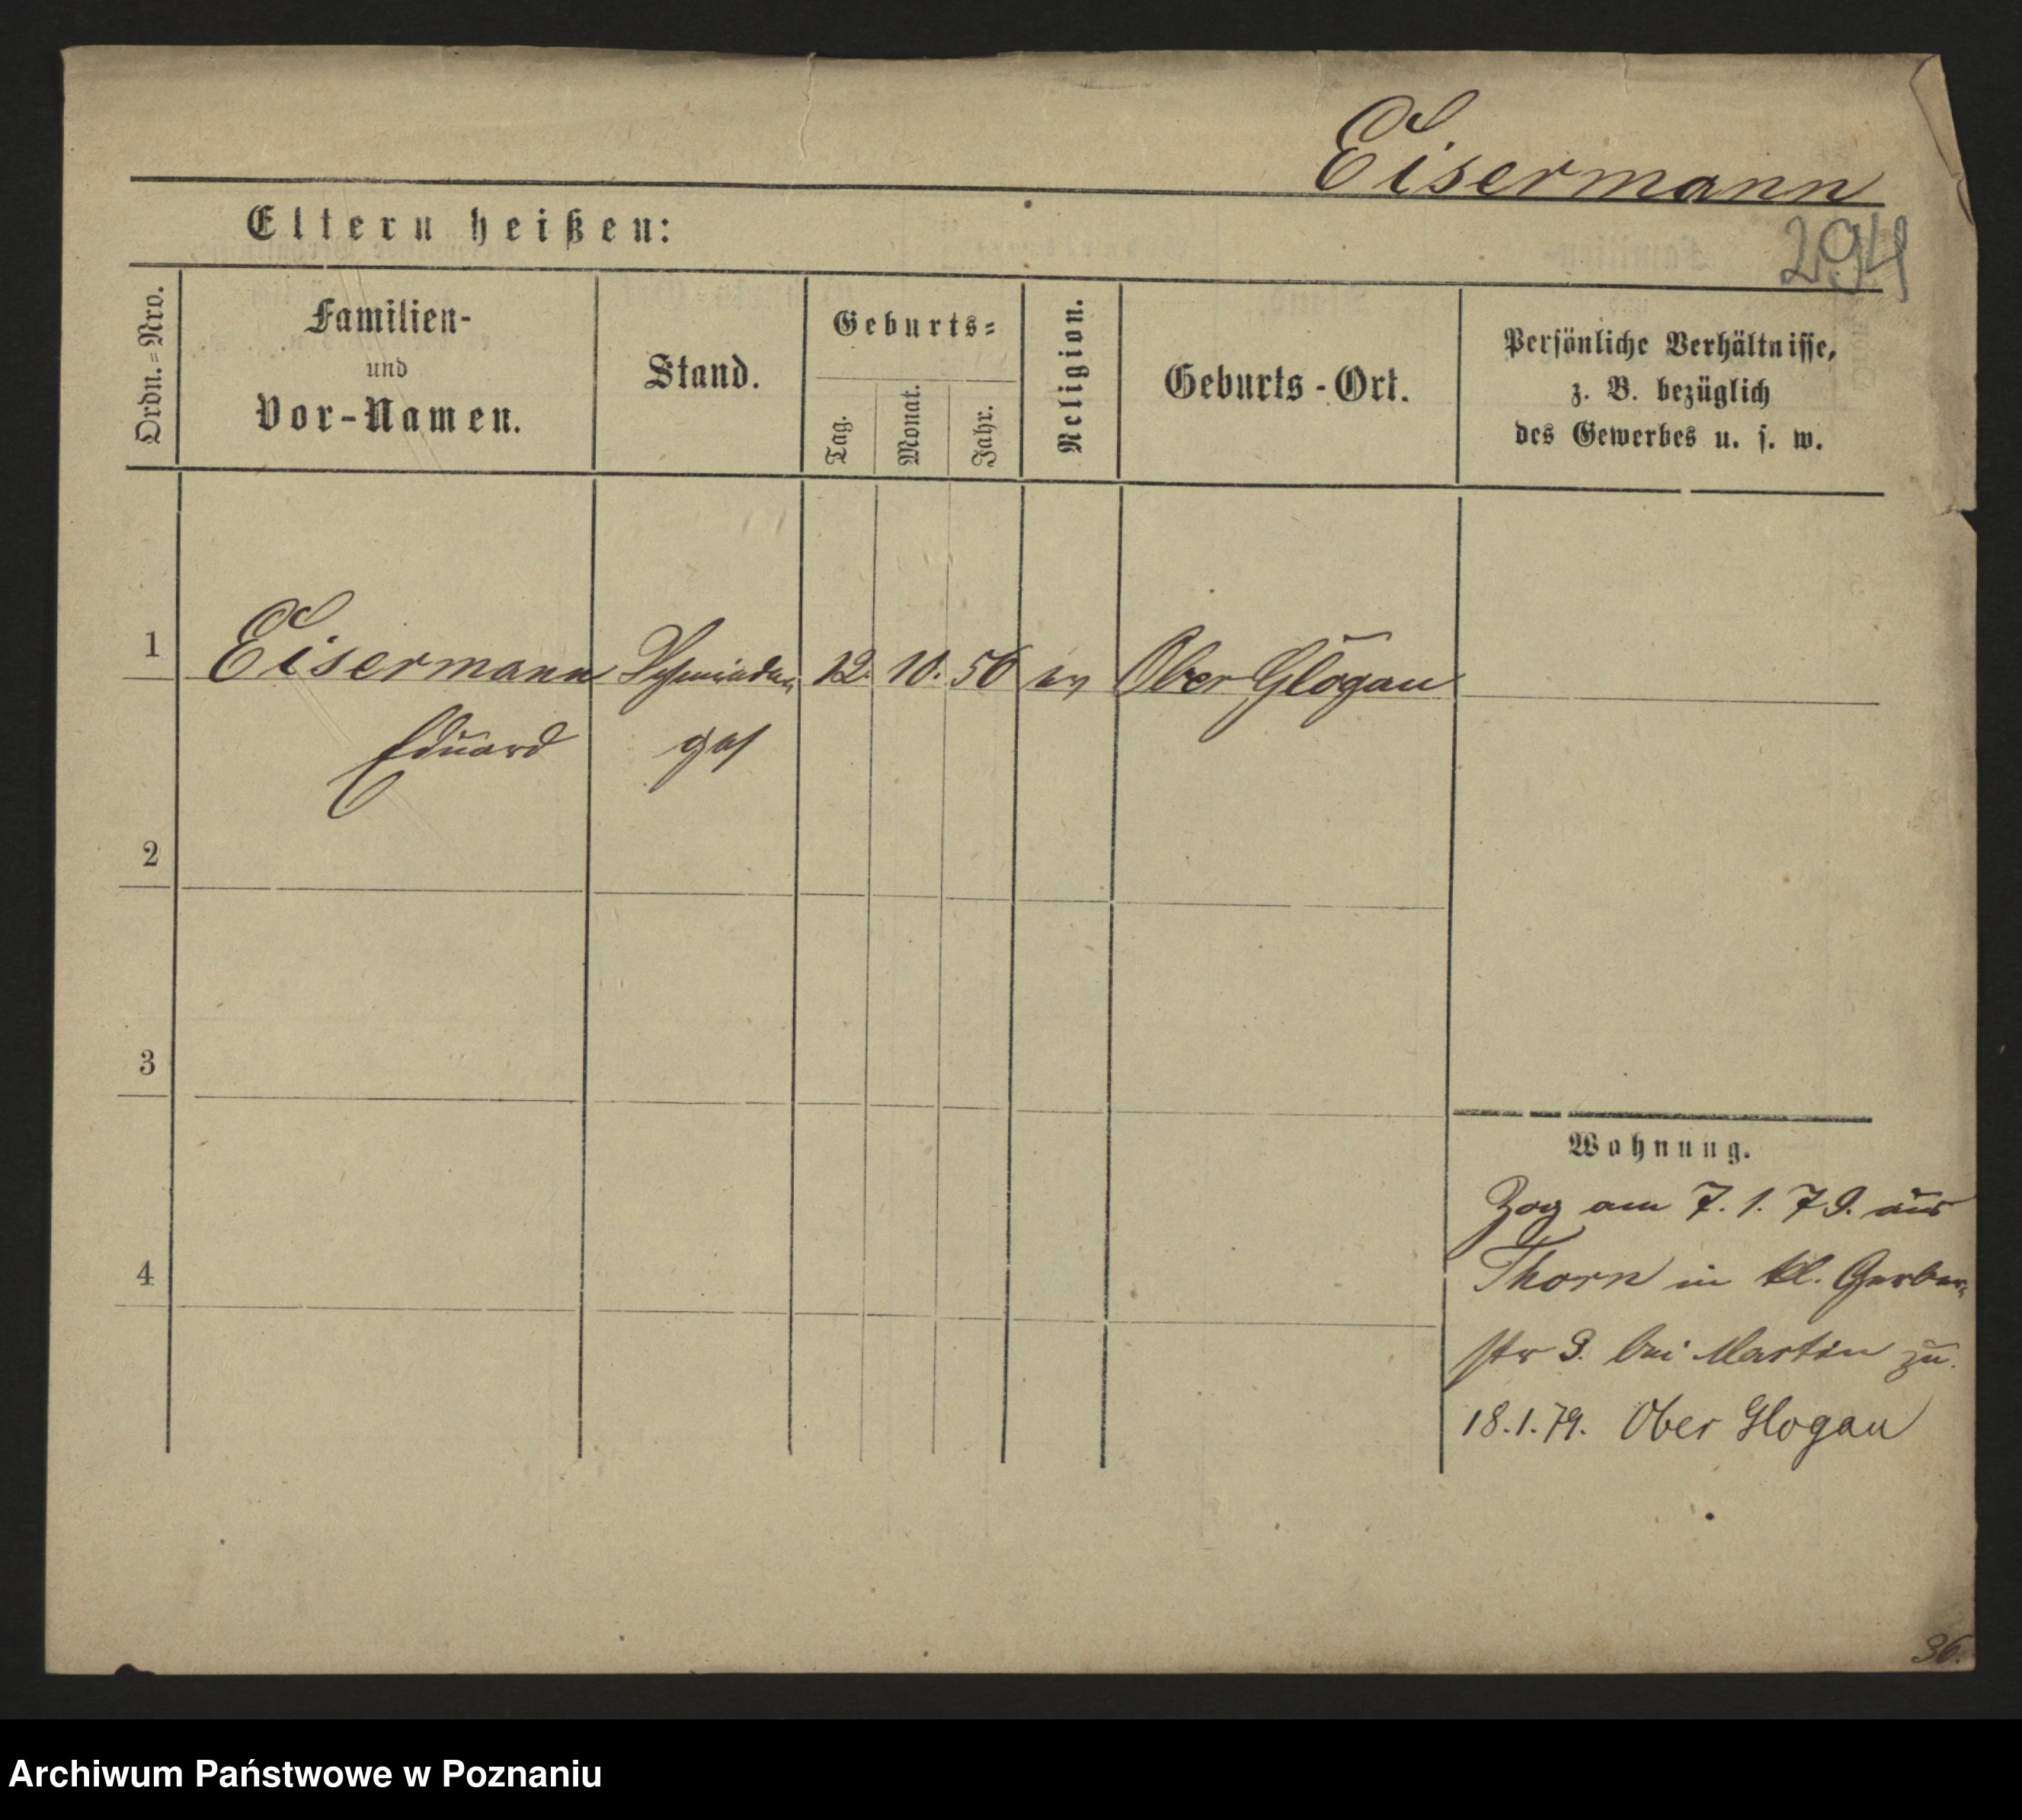 Eisermann
294
Eltern heißen:
Ordn.=Nro.
Familien-
und
Vor-Namen.
Stand.
Geburts=
Tag.
Monat.
Jahr.
Religion.
Geburts-Ort.
Persönliche Verhältnisse,
z. B. bezüglich
des Gewerbes u. s. w.
1 Eisermann Schmiede- 12. 10. 56 ev Ober Glogau
Eduard ges
2
3
4
Wohnung.
Zog am 7. 1. 79. aus
Thorn in kl. Gerber-
str 3. bei Martin zu.
18.1.79. Ober Glogau
36.
Archiwum Państwowe w Poznaniu